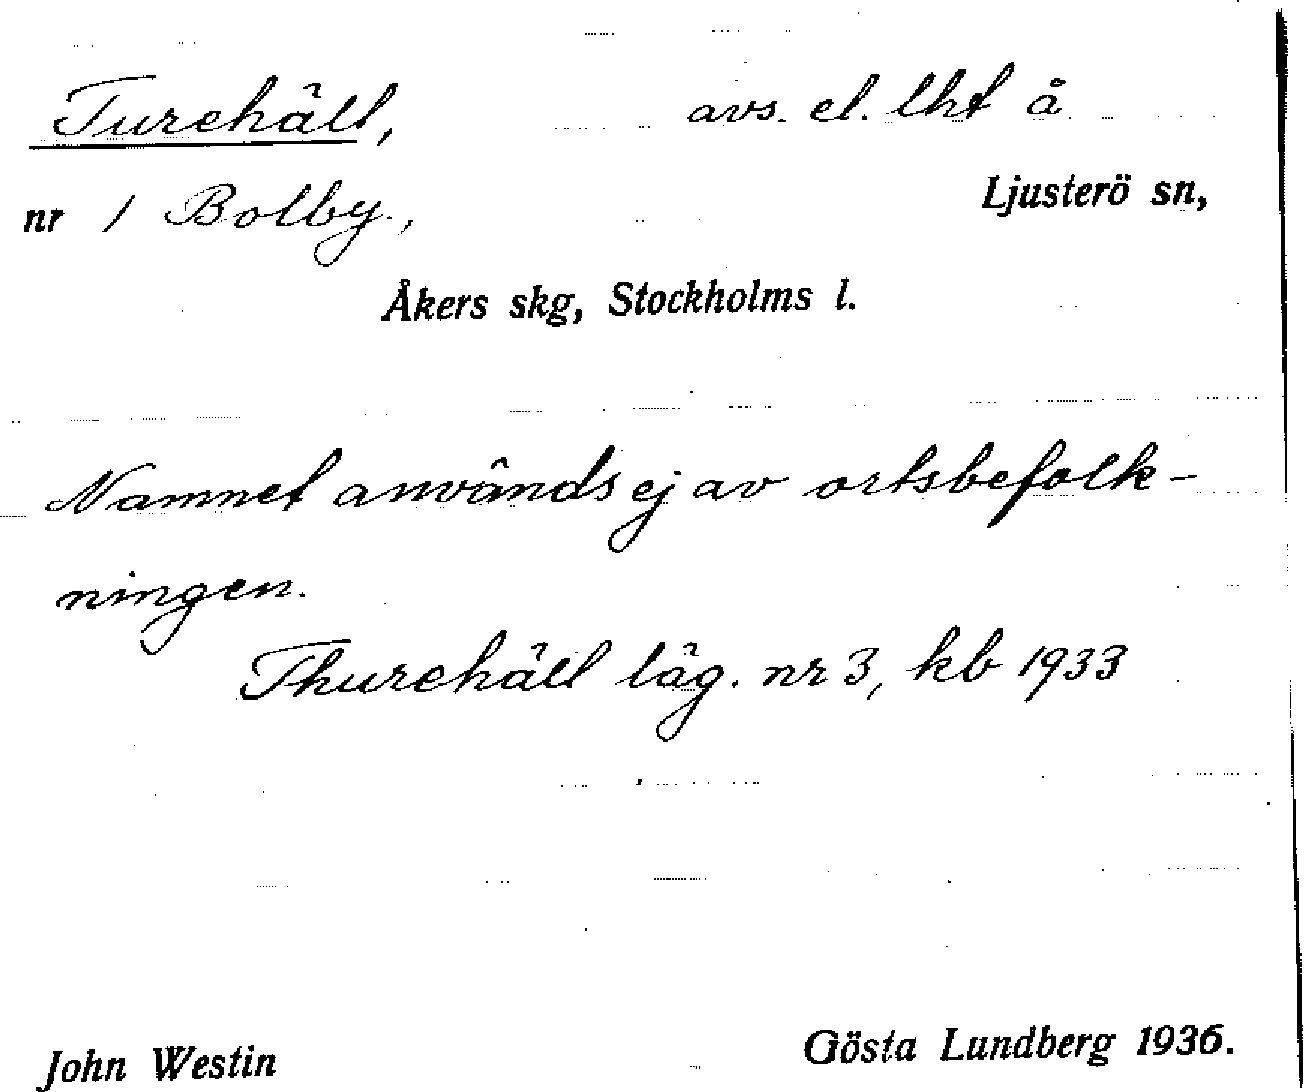 Turehäll, avs. el. lht å
nr 1 Bolby., Ljusterö sn,
Åkers skg, Stockholms l.
Namnet används ej av ortsbefolk-
ningen.
Thurehäll läg. nr 3, kb 1933
John Westin Gösta Lundberg 1936.